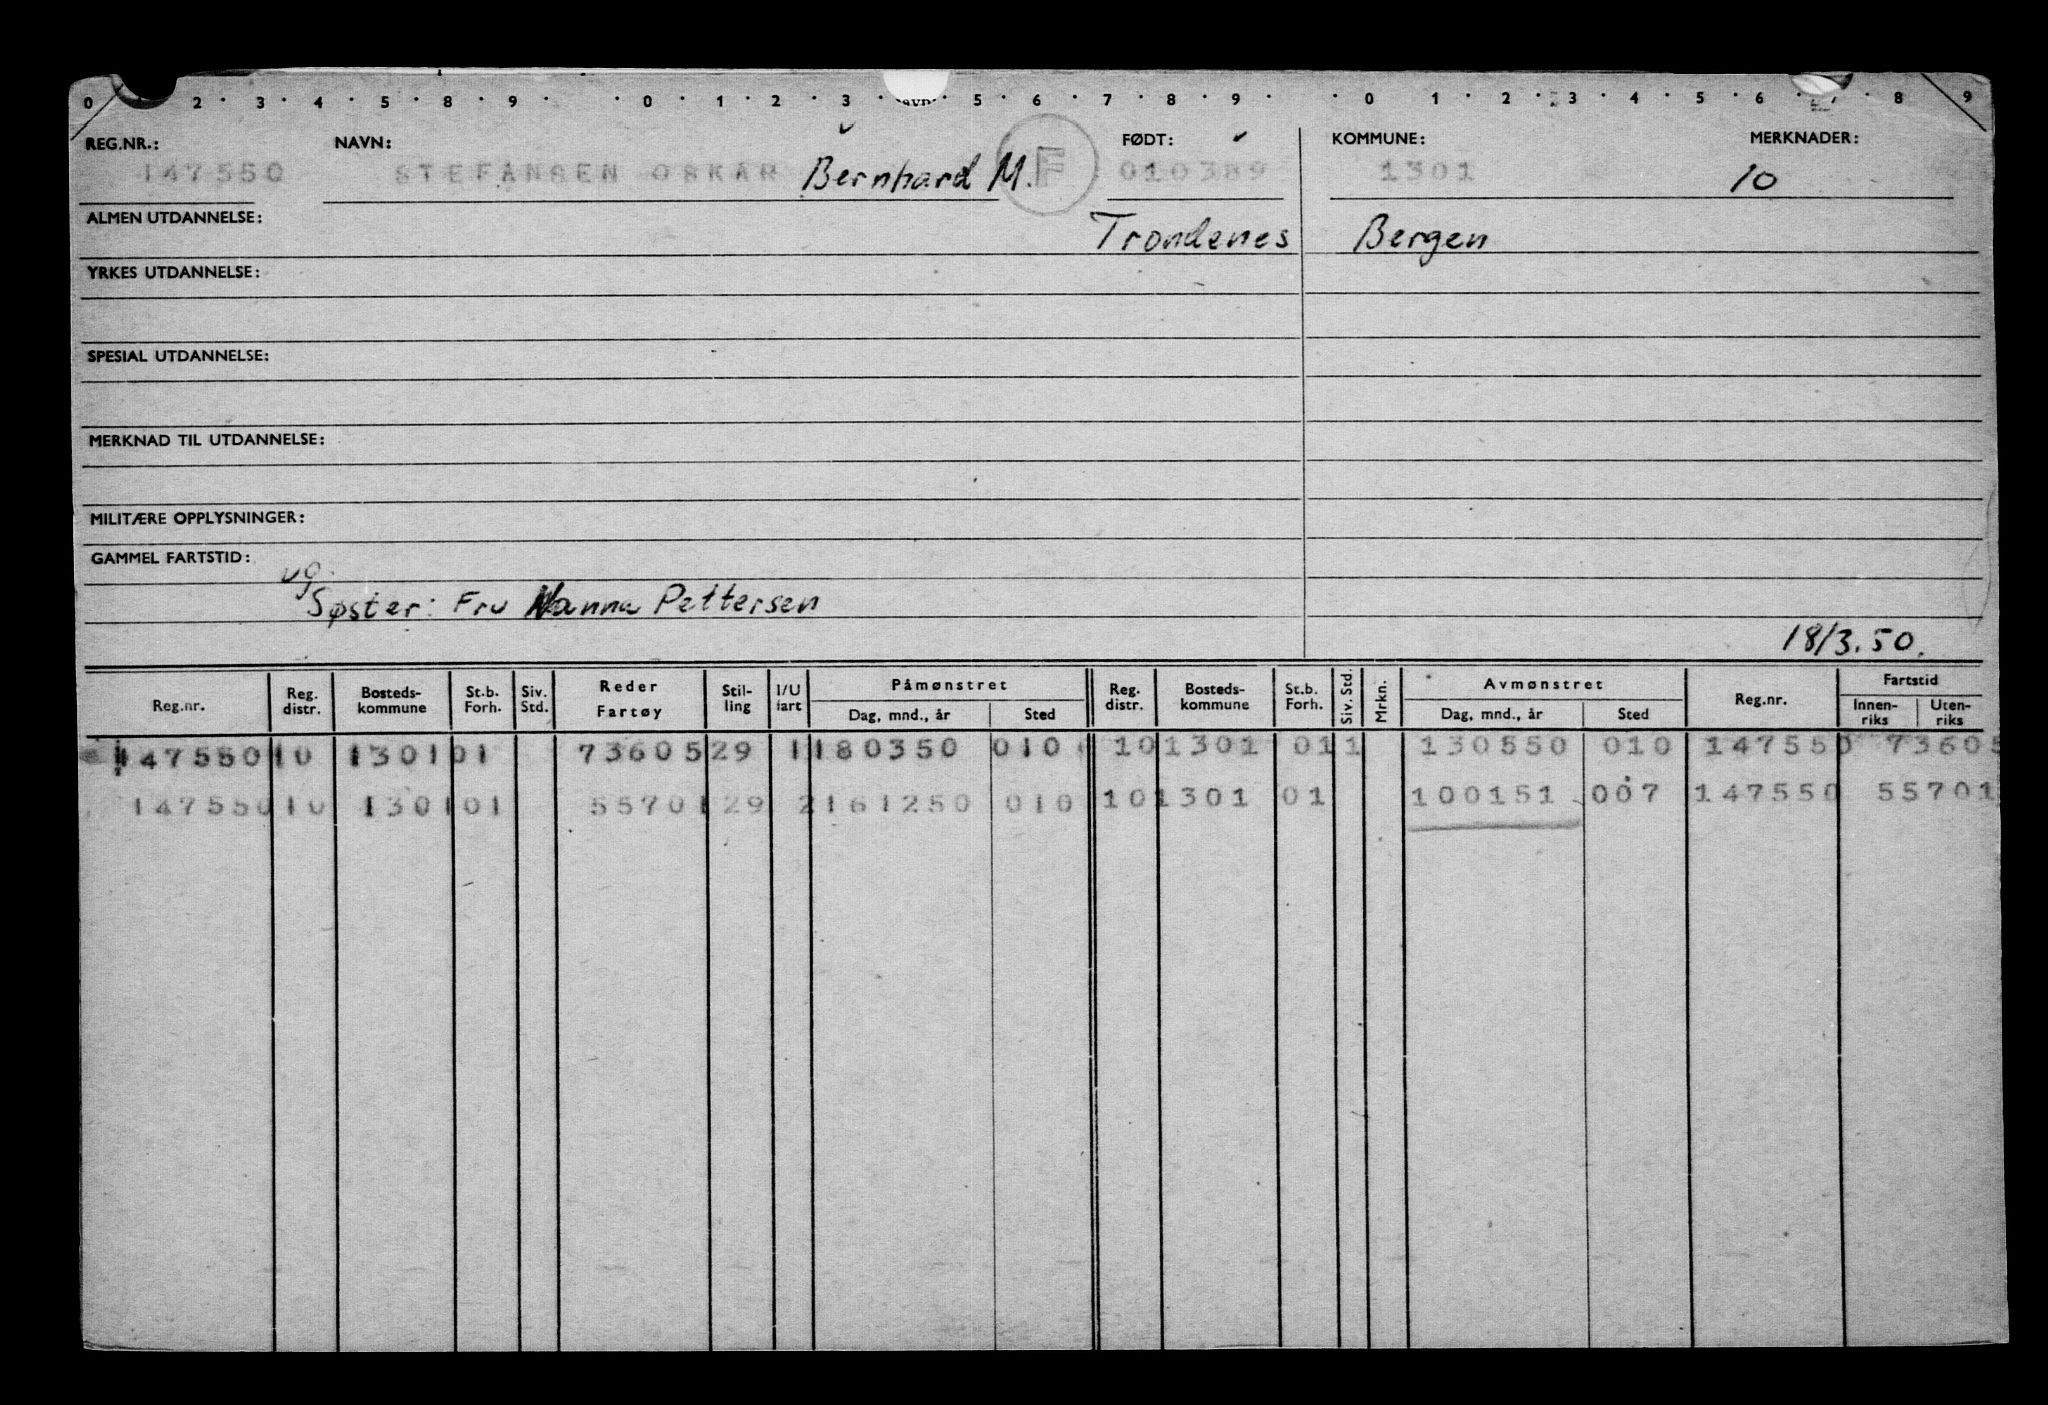 0 2 3 4 5 8 9 0 1 2 3 5 6 7 8 9 0 1 2 3 4 5 6 7 8 9
REG.NR.: NAVN: FØDT: KOMMUNE: MERKNADER:
147550 STEFANSEN OSKAR Bernhard M. F 010389 1301 10
ALMEN UTDANNELSE: Trondenes Bergen
YRKES UTDANNELSE:
SPESIAL UTDANNELSE:
MERKNAD TIL UTDANNELSE:
MILITÆRE OPPLYSNINGER:
GAMMEL FARTSTID:
ug.
Søster: Fru Nanna Pettersen
18/3.50.
Reg.nr. Reg. distr. Bosteds-kommune St.b. Forh. Siv. Std. Reder Fartøy Stil-ling I/U fart Påmønstret Dag, mnd., år Sted Reg. distr. Bosteds-kommune St.b. Forh. Siv. Std. Mrkn. Avmønstret Dag, mnd., år Sted Reg.nr. Fartstid Innen-riks Uten-riks
147550 10 1301 01 73605 29 1 180350 010 10 1301 01 1 130550 010 147550 73605
147550 10 1301 01 55701 29 2 161250 010 10 1301 01 100151 007 147550 55701